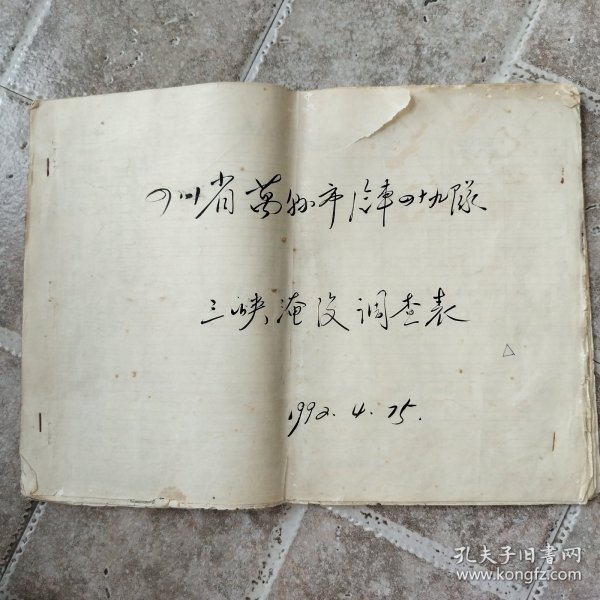 四川省萬县市汽車四十九隊
三峡淹没调查表
1992.4.25.
孔夫子旧书网
www.kongfz.com